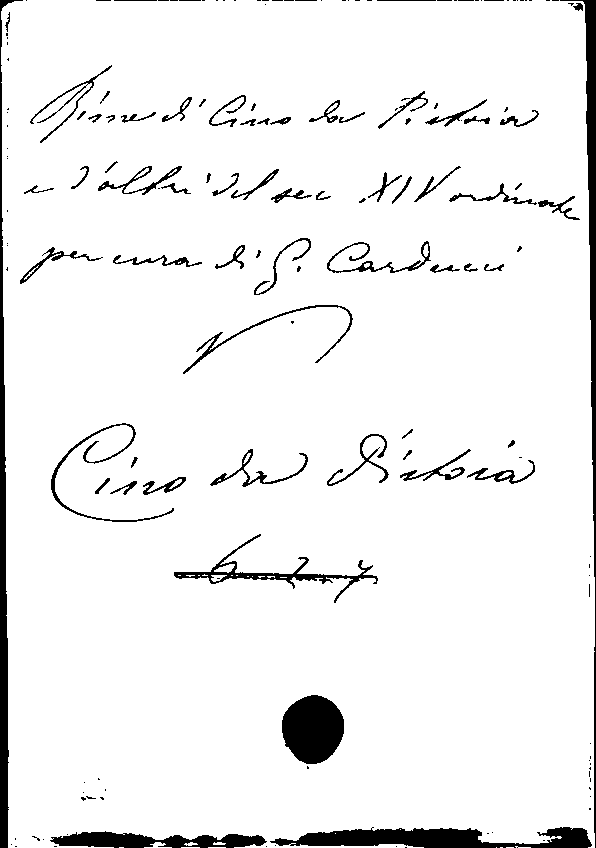 Rime di Cino da Pistoia
e d'altri del sec XIV ordinate
per cura di G. Carducci
V
Cino da Pistoia
6 2 7